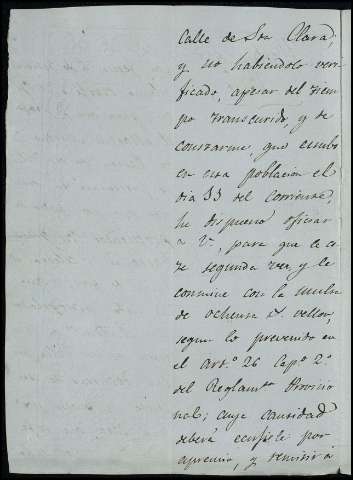 Calle de Sta Clara;
y no habiendolo veri
ficado, apesar del tiem
po transcurrido, y de
constarme, que estubo
en esa poblacion el
dia 13 del corriente,
he dispuesto oficiar
a V., para que le ci
te segunda vez, y le
conmine con la multa
de ochenta r.s vellon,
segun lo prevenido en
el art.o 26 Cap.o 2.o
del Reglam.to Provicio
nal; cuya cantidad
deberá por
apremio, y remitirá